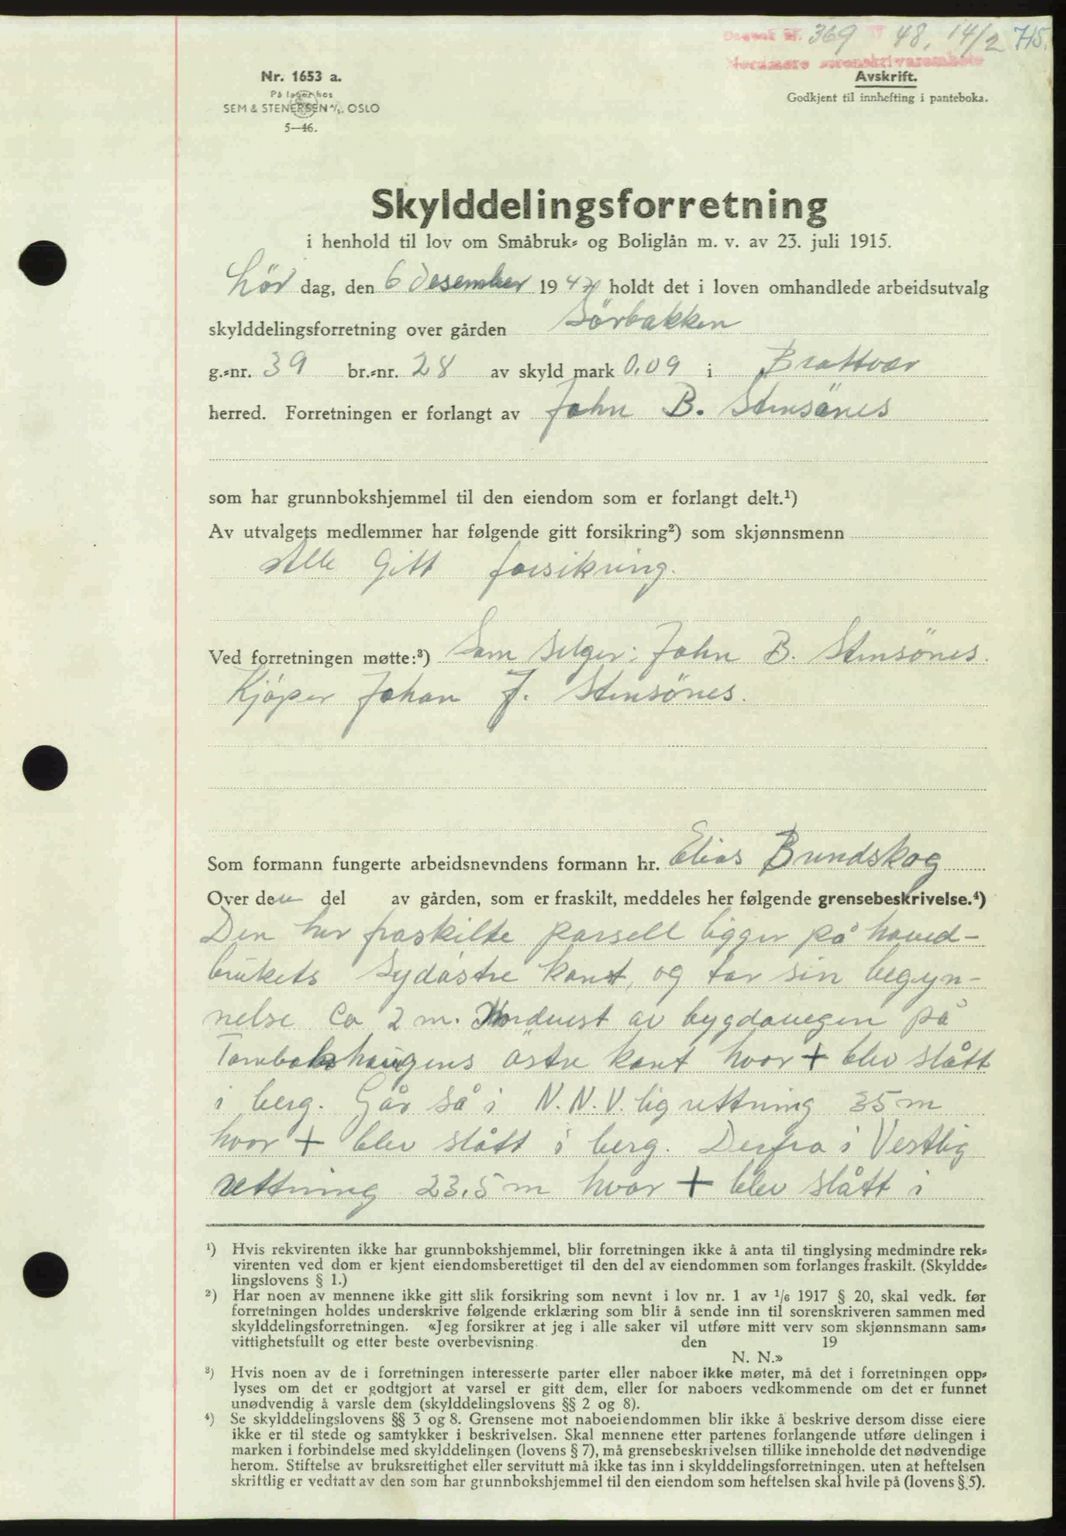 Dagbok nr. 369 48, 14/2 715.
Nordmøre sorenskriverembete
Nr. 1653 a.
På lager hos
SEM & STENERSEN A/S. OSLO
5—46.
Avskrift.
Godkjent til innhefting i panteboka.
Skylddelingsforretning
i henhold til lov om Småbruk- og Boliglån m. v. av 23. juli 1915.
Lör dag, den 6 desember 1947 holdt det i loven omhandlede arbeidsutvalg
skylddelingsforretning over gården Sörbakken
g.-nr. 39 br.-nr. 28 av skyld mark 0,09 i Brattvær
herred. Forretningen er forlangt av John B. Stensönes
som har grunnbokshjemmel til den eiendom som er forlangt delt.¹)
Av utvalgets medlemmer har følgende gitt forsikring²) som skjønnsmenn
Alle gitt forsikring.
Ved forretningen møtte:³) Som selger: John B. Stensönes.
Kjöper Johan J. Stensönes.
Som formann fungerte arbeidsnevndens formann hr. Elias Brundskog
Over den del av gården, som er fraskilt, meddeles her følgende grensebeskrivelse.⁴)
Den her fraskilte parsell ligger på hoved-
brukets Sydöstre kant, og tar sin begyn-
nelse Ca 2 m. Nordvest av bygdavegen på
östre kant hvor + blev slått
i berg. Går så i N.N.V. lig rettning 35 m
hvor + blev slått i berg. Derfra i Vestlig
rettning 23,5 m hvor + blev slått i
¹) Hvis rekvirenten ikke har grunnbokshjemmel, blir forretningen ikke å anta til tinglysing medmindre rek-
virenten ved dom er kjent eiendomsberettiget til den del av eiendommen som forlanges fraskilt. (Skyldde-
lingslovens § 1.)
²) Har noen av mennene ikke gitt slik forsikring som nevnt i lov nr. 1 av 1/6 1917 § 20, skal vedk. før
forretningen holdes underskrive følgende erklæring som blir å sende inn til sorenskriveren sammen med
skylddelingsforretningen. «Jeg forsikrer at jeg i alle saker vil utføre mitt verv som skjønnsmann sam-
vittighetsfullt og etter beste overbevisning. den 19
N. N.»
³) Hvis noen av de i forretningen interesserte parter eller naboer ikke møter, må det i forretningen opp-
lyses om det er godtgjort at varsel er gitt dem, eller for naboers vedkommende om det er funnet
unødvendig å varsle dem (skylddelingslovens §§ 2 og 8).
⁴) Se skylddelingslovens §§ 3 og 8. Grensene mot naboeiendommen blir ikke å beskrive dersom disse eiere
ikke er til stede og samtykker i beskrivelsen. Skal mennene etter partenes forlangende utføre delingen i
marken i forbindelse med skylddelingen (lovens § 7), må grensebeskrivelsen tillike inneholde det nødvendige
herom. Stiftelse av bruksrettighet eller servitutt må ikke tas inn i skylddelingsforretningen, uten at heftelsen
skriftlig er vedtatt av den som har grunnbokshjemmel til den eiendom som heftelsen skal hvile på (lovens § 5).